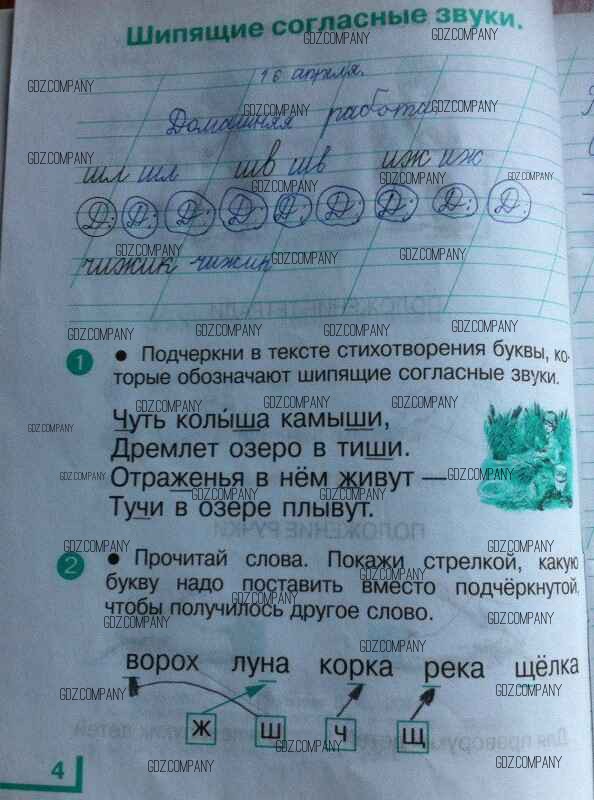 Шипящие согласные звуки.
16 апреля.
Домашняя работа
шл шл шв шв иж иж
чижик чижик
1 • Подчеркни в тексте стихотворения буквы, ко-
торые обозначают шипящие согласные звуки.
Чуть колы́ша камыши,
Дремлет озеро в тиши.
Отраженья в нём живут —
Тучи в озере плывут.
2 • Прочитай слова. Покажи стрелкой, какую
букву надо поставить вместо подчёркнутой,
чтобы получилось другое слово.
ворох луна корка река щёлка
Ж Ш Ч Щ
4
GDZ.COMPANY